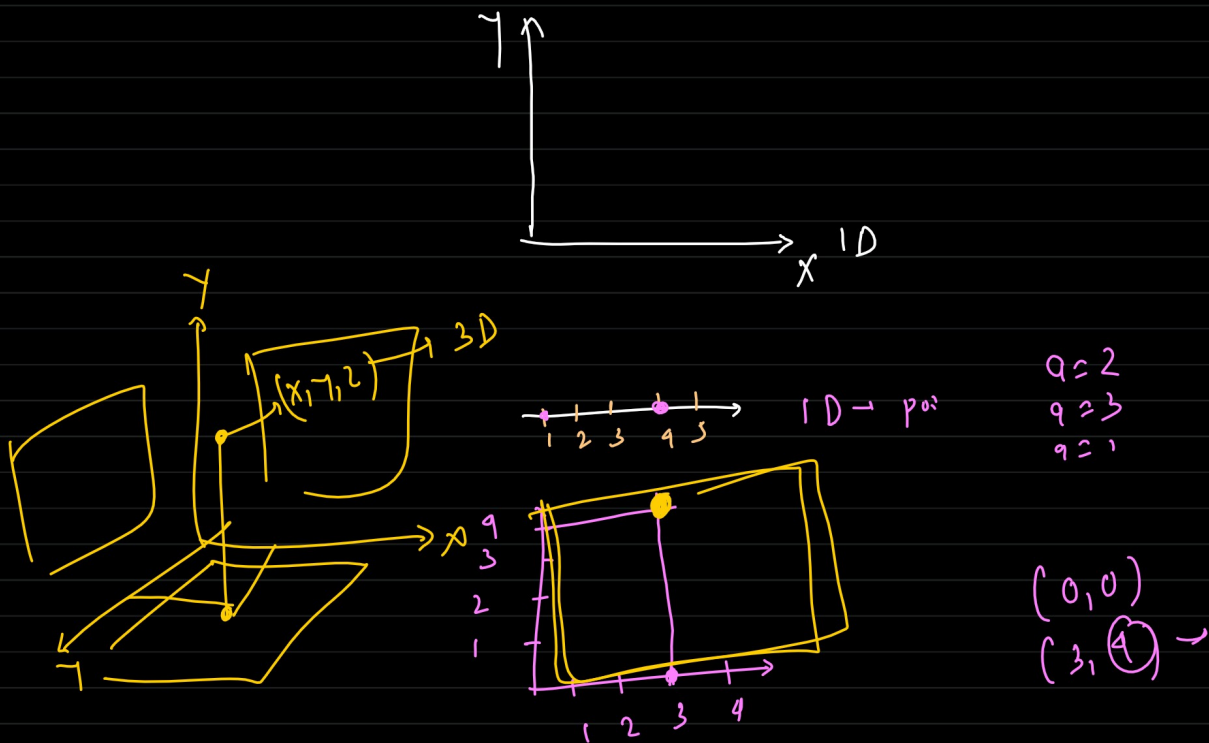 Y
X 1D
Y
3D
(x, y, z)
X
1 2 3 4 5
1D → poi
a = 2
a = 3
a = 1
4
3
2
1
1 2 3 4
(0,0)
(3,4) →